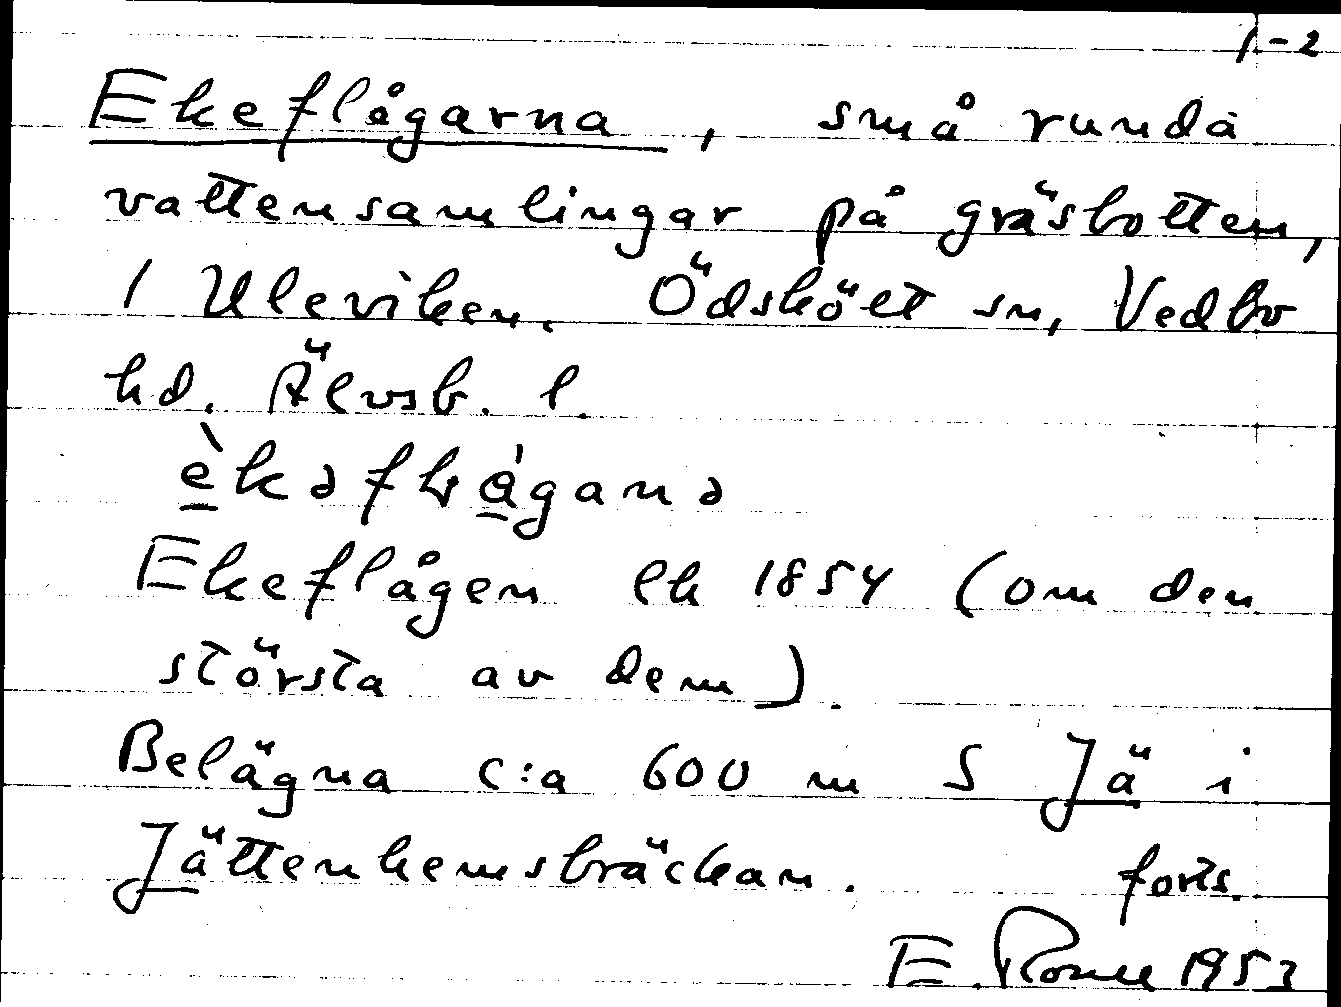 1-2
Ekeflågarna, små runda
vattensamlingar på gräsbotten,
1 Uleviken. Ödskölt sn, Vedbo
hd. Älvsb. l.
Ekeflågen lk 1854 (om den
största av dem).
Belägna c:a 600 m S Jä i
Jättenhemsbräckan. forts.
E. 1953